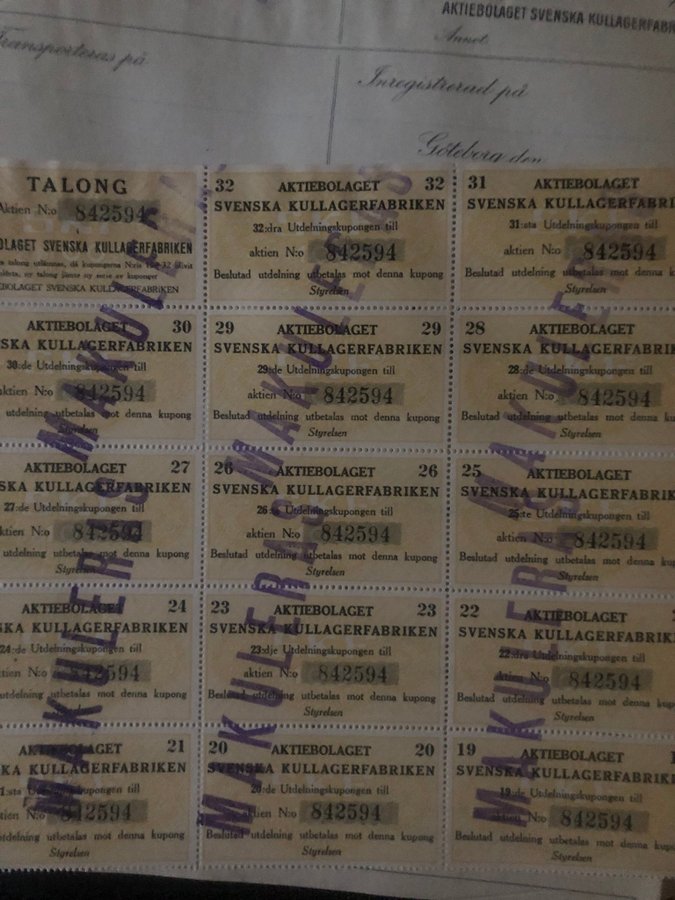 AKTIEBOLAGET SVENSKA KULLAGERFABR
Annot.
Transporteras på
Inregistrerad på
Göteborg den
TALONG
Aktien N:o 842594
OLAGET SVENSKA KULLAGERFABRIKEN
BOLAGET SVENSKA KULLAGERFABRIKEN
32 AKTIEBOLAGET 32
SVENSKA KULLAGERFABRIKEN
32:dra Utdelningskupongen till
aktien N:o 842594
Beslutad utdelning utbetalas mot denna kupong
Styrelsen
31 AKTIEBOLAGET
SVENSKA KULLAGERFABRIKEN
31:sta Utdelningskupongen till
aktien N:o 842594
Beslutad utdelning utbetalas mot denna kupong
Styrelsen
AKTIEBOLAGET 30
SKA KULLAGERFABRIKEN
30:de Utdelningskupongen till
aktien N:o 842594
utdelning utbetalas mot denna kupong
Styrelsen
29 AKTIEBOLAGET 29
SVENSKA KULLAGERFABRIKEN
29:de Utdelningskupongen till
aktien N:o 842594
Beslutad utdelning utbetalas mot denna kupong
Styrelsen
28 AKTIEBOLAGET
SVENSKA KULLAGERFABRIKEN
28:de Utdelningskupongen till
aktien N:o 842594
Beslutad utdelning utbetalas mot denna kupong
Styrelsen
AKTIEBOLAGET 27
SKA KULLAGERFABRIKEN
27:de Utdelningskupongen till
aktien N:o 842594
utdelning utbetalas mot denna kupong
Styrelsen
26 AKTIEBOLAGET 26
SVENSKA KULLAGERFABRIKEN
26:te Utdelningskupongen till
aktien N:o 842594
Beslutad utdelning utbetalas mot denna kupong
Styrelsen
25 AKTIEBOLAGET
SVENSKA KULLAGERFABRIKEN
25:te Utdelningskupongen till
aktien N:o 842594
Beslutad utdelning utbetalas mot denna kupong
Styrelsen
AKTIEBOLAGET 24
SKA KULLAGERFABRIKEN
24:de Utdelningskupongen till
aktien N:o 842594
utdelning utbetalas mot denna kupong
Styrelsen
23 AKTIEBOLAGET 23
SVENSKA KULLAGERFABRIKEN
23:dje Utdelningskupongen till
aktien N:o 842594
Beslutad utdelning utbetalas mot denna kupong
Styrelsen
22 AKTIEBOLAGET
SVENSKA KULLAGERFABRIKEN
22:dra Utdelningskupongen till
aktien N:o 842594
Beslutad utdelning utbetalas mot denna kupong
Styrelsen
AKTIEBOLAGET 21
SKA KULLAGERFABRIKEN
1:sta Utdelningskupongen till
aktien N:o 842594
utdelning utbetalas mot denna kupong
Styrelsen
20 AKTIEBOLAGET 20
SVENSKA KULLAGERFABRIKEN
20:de Utdelningskupongen till
aktien N:o 842594
Beslutad utdelning utbetalas mot denna kupong
Styrelsen
19 AKTIEBOLAGET
SVENSKA KULLAGERFABRIKEN
19:de Utdelningskupongen till
aktien N:o 842594
Beslutad utdelning utbetalas mot denna kupong
Styrelsen
MAKULERAS MAKULERA
MAKULERAS MAKULERAS
MAKULERAS MAKULERA